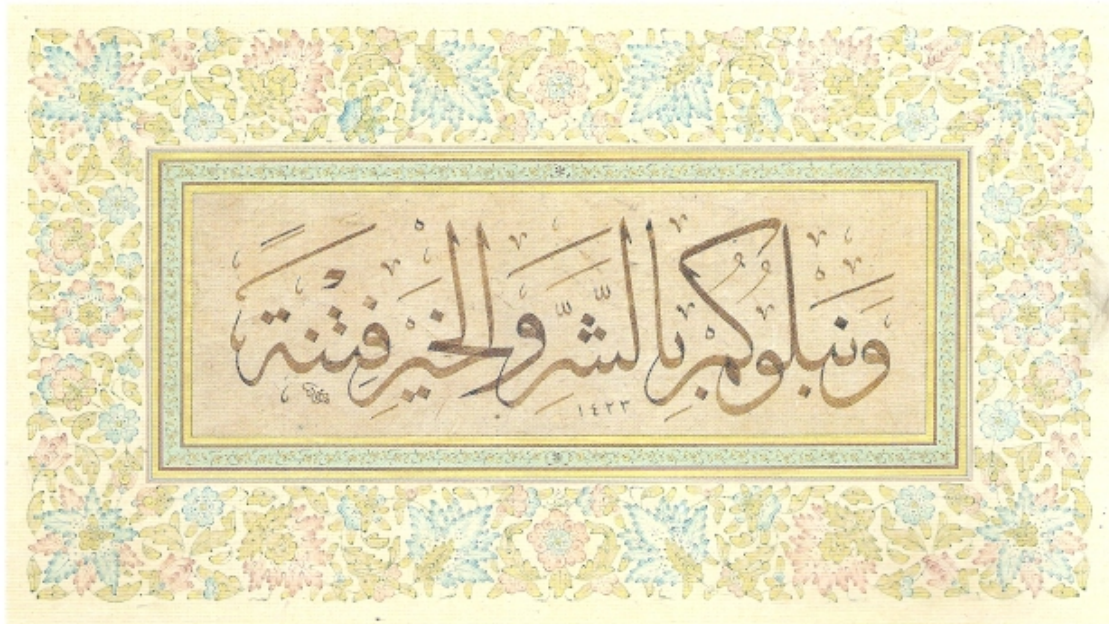 وَنَبْلُوكُمْ بِالشَّرِّ وَالْخَيْرِ فِتْنَةً
١٤٢٣